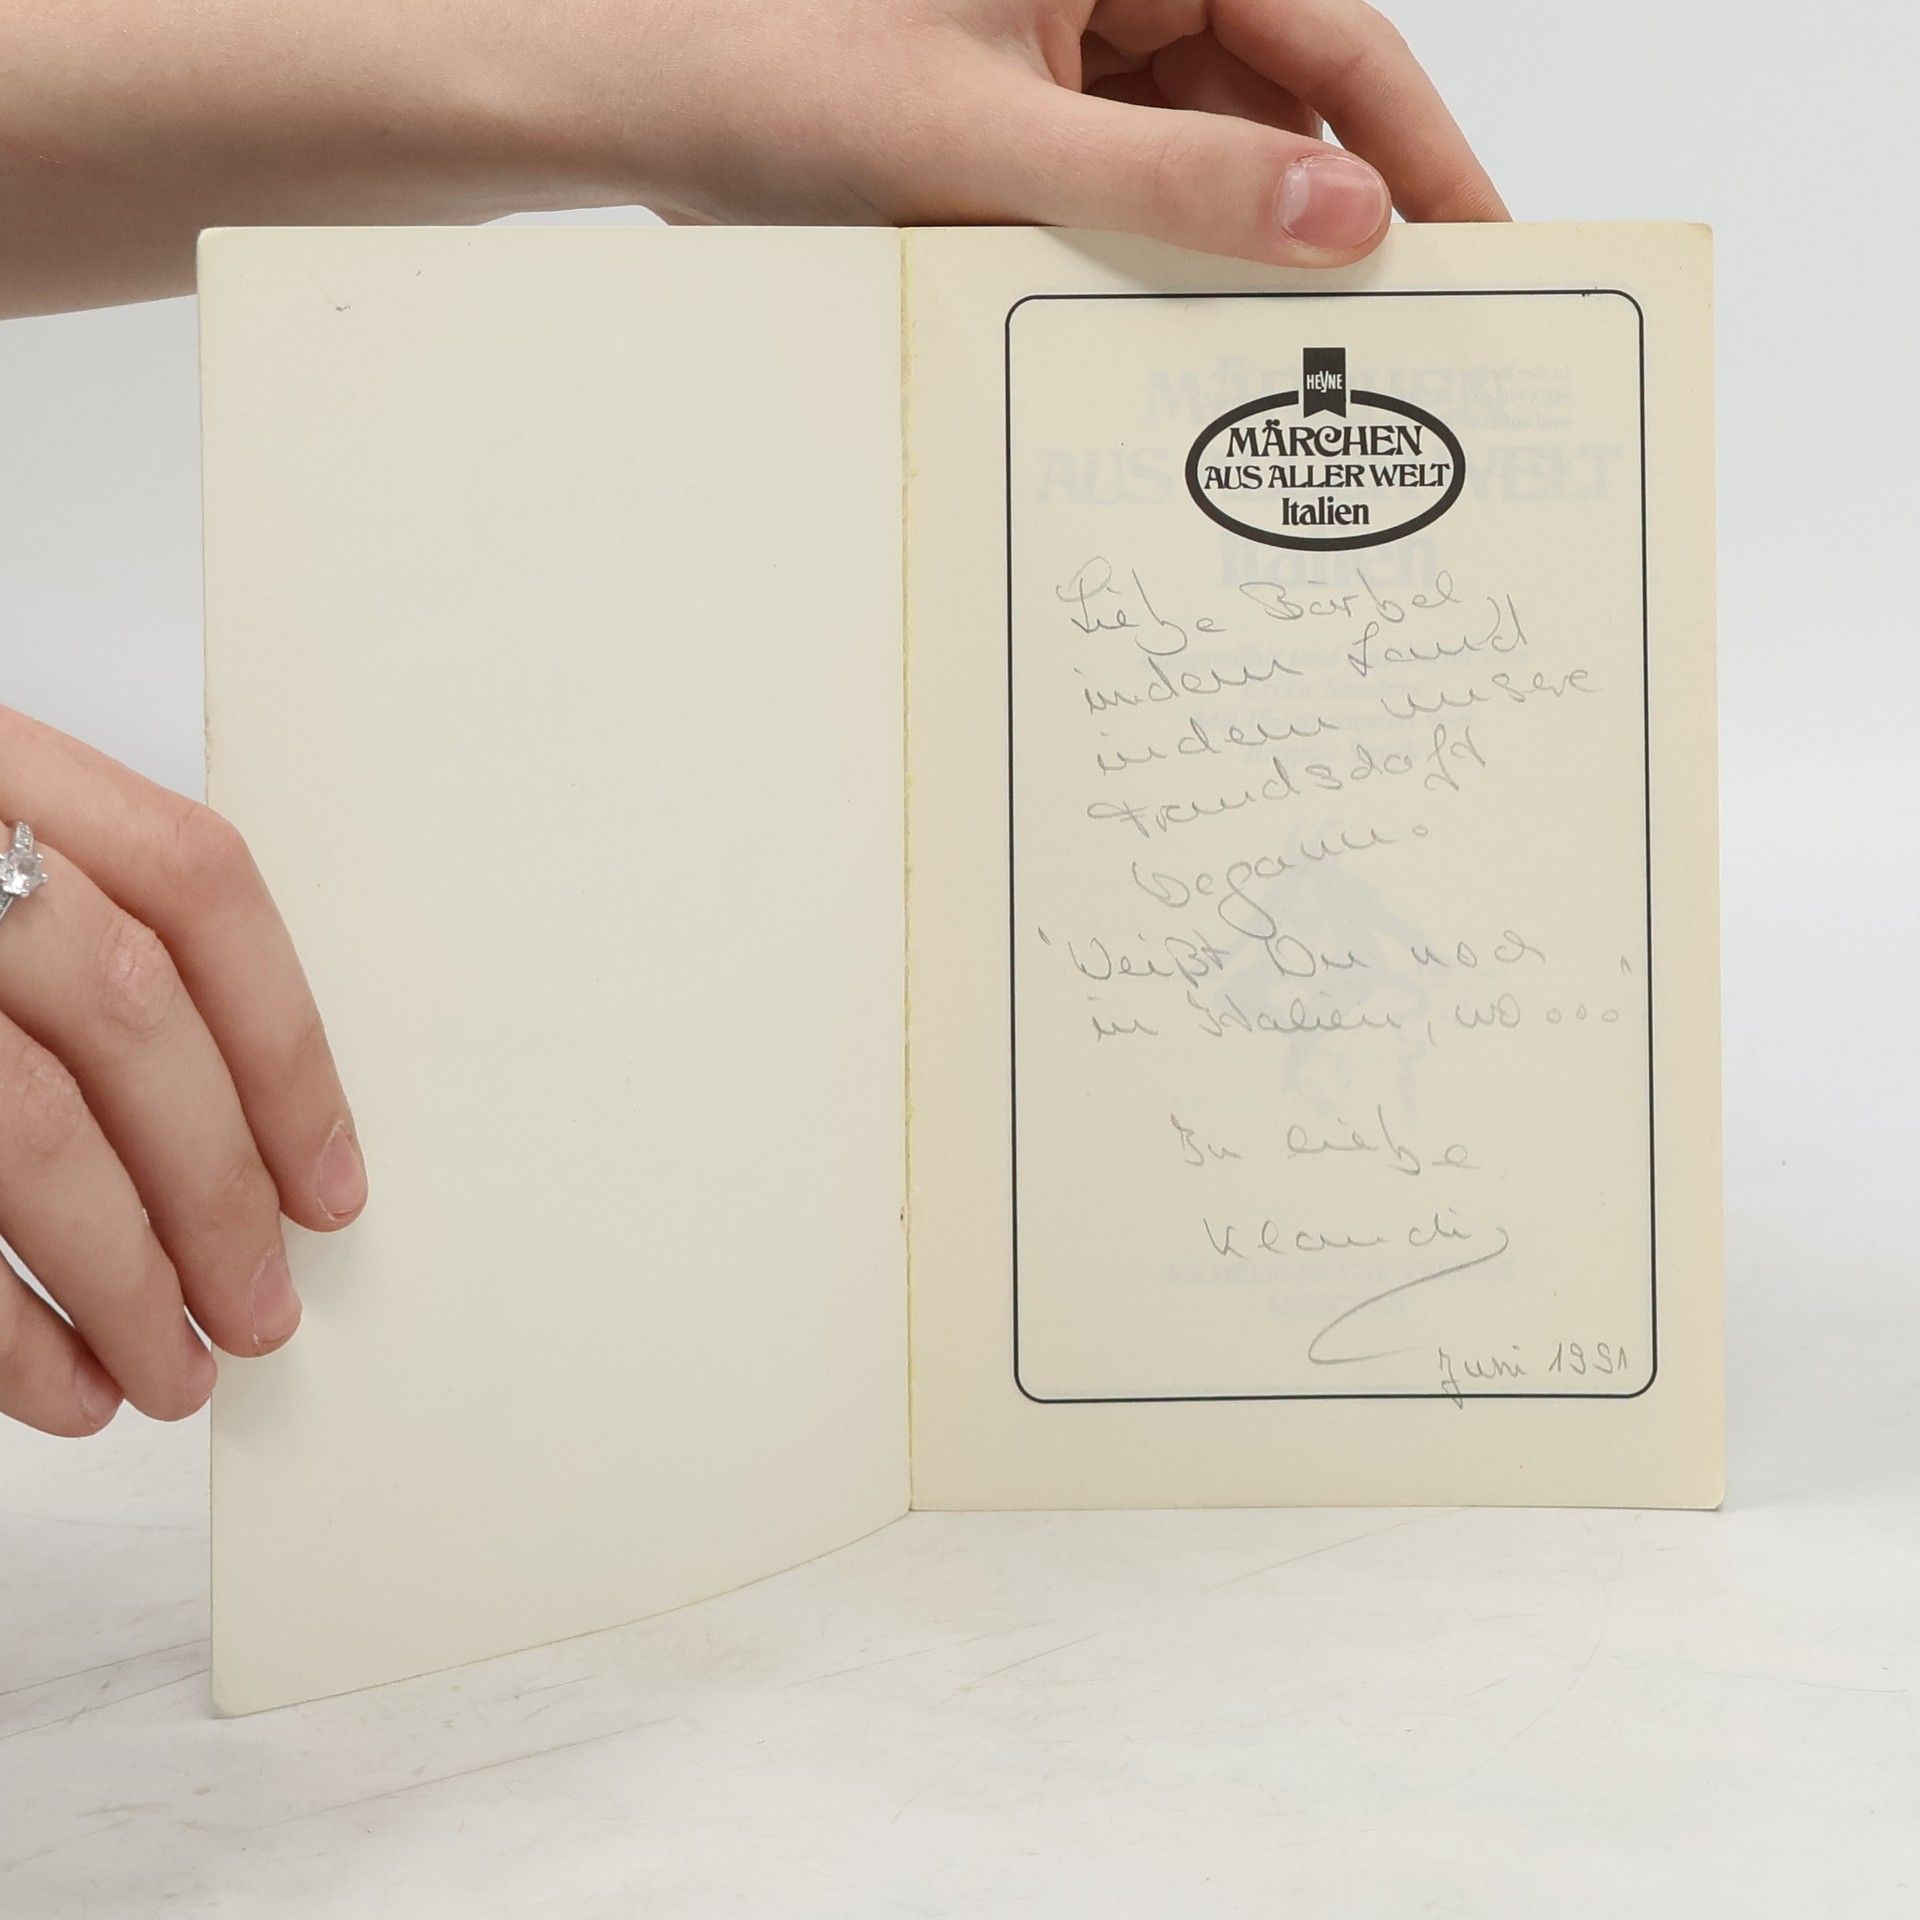 HEYNE
MÄRCHEN
AUS ALLER WELT
Italien
Liebe Bärbel
in dem Land
in dem unsere
Freundschaft
begann.
"Weißt Du noch
in Italien, wo ..."
In Liebe
Klaudia
Juni 1991